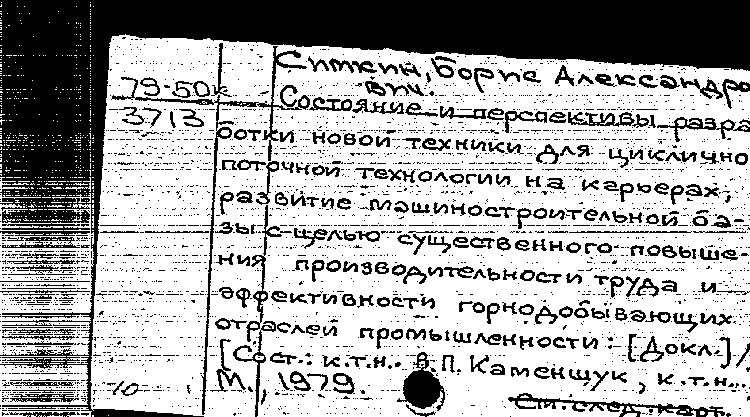 Ситкин, Борис Александро
вич.
79-50к
3713
Состояние и перспективы разра
ботки новой техники для циклично
поточной технологии на карьерах,
развитие машиностроительной ба-
зы с целью существенного повыше-
ния производительности труда и
эффективности горнодобывающих
отраслей промышленности: [Докл.] /
[Сост.: к.т.н. В.П. Каменщук, к.т.н...
М., 1979.
10
См. след. карт.